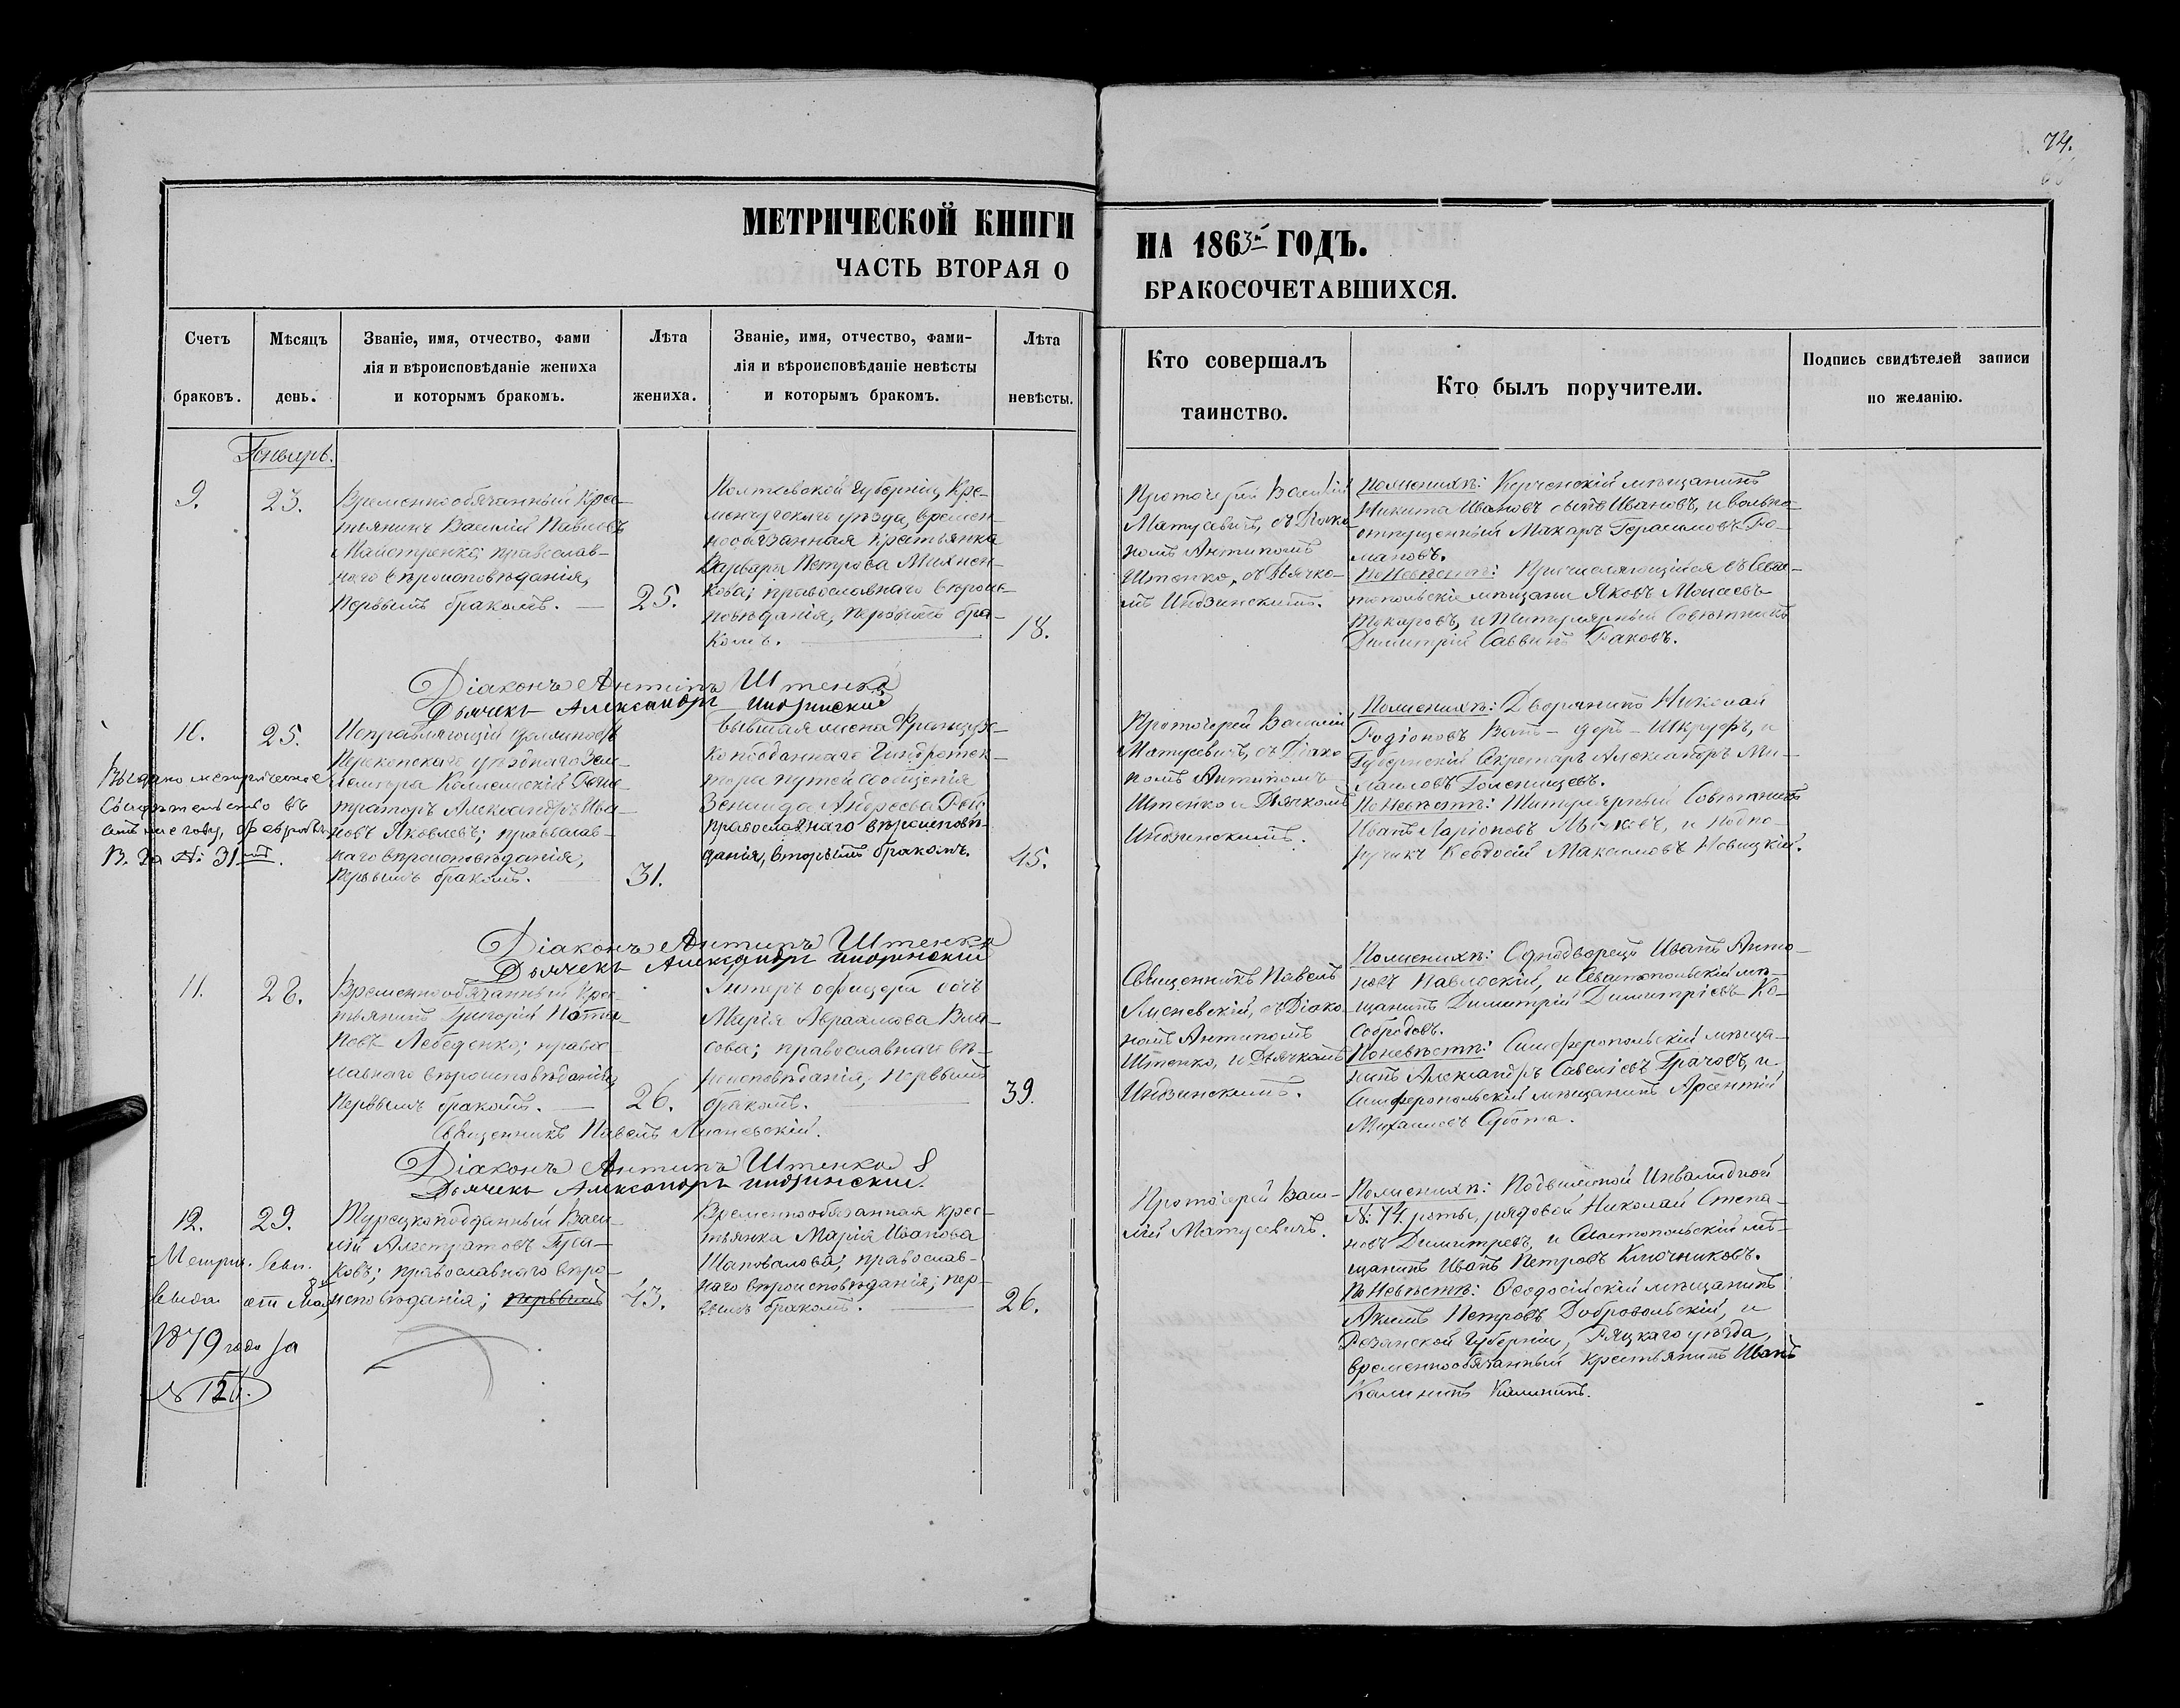 74.
МЕТРИЧЕСКОЙ КНИГИ
НА 1863й ГОДЪ.
ЧАСТЬ ВТОРАЯ О
БРАКОСОЧЕТАВШИХСЯ.
Счетъ
браковъ.
Мѣсяцъ
день.
Званіе, имя, отчество, фами
лія и вѣроисповѣданіе жениха
и которымъ бракомъ.
Лѣта
жениха.
Званіе, имя, отчество, фами-
лія и вѣроисповѣданіе невѣсты
и которымъ бракомъ.
Лѣта
невѣсты.
Кто совершалъ
таинство.
Кто былъ поручители.
Подпись свидѣтелей записи
по желанію.
Генварь.
9.
23.
Временнообязанный Крес-
тьянинъ Василій Павловъ
православ-
наго вѣроисповѣданія,
первымъ бракомъ.
25.
Полтавской Губерніи, Кре-
менчугскаго уѣзда, времен-
нообязанная Крестьянка
Варвара Петрова
православнаго вѣроис-
повѣданія, первымъ бра-
комъ.
18.
Протоіерей Василій
Матусевичъ, съ Діако-
номъ Антипомъ
Штенко, съ Дьячко-
мъ Индзинскимъ.
По женихѣ: Керченскій мѣщанинъ
Никита Ивановъ сынъ Ивановъ, и вольно-
отпущенный Макаръ Герасимовъ Ро-
мановъ.
По Невѣстѣ: Причисляющійся въ Севас-
топольскіе мѣщане Яковъ Моисеевъ
Токаровъ, и Титулярный Совѣтникъ
Димитрій Саввинъ Раковъ.
Діаконъ Антипъ Штенко
Дьячекъ Александръ Индзинскій
10.
25.
Исправляющій должность
Перекопскаго уѣзднаго Зем-
лемѣра Коллежскій Регис-
траторъ Александръ Ива-
новъ Яковлевъ; православ-
наго вѣроисповѣданія,
первымъ бракомъ.
31.
Выдано метрическое
свидѣтельство въ
февраля
В. За № 31
бывшая жена Французс-
коподданнаго
путей сообщенія
Зенаида Андреева
православнаго вѣроисповѣ-
данія, вторымъ бракомъ.
45.
Протоіерей Василій
Матусевичъ, съ Діако
номъ Антипомъ
Штенко и Дьячкомъ
Индзинскимъ.
По женихѣ: Дворянинъ Николай
Родіоновъ Ванъ-деръ-Шкруфъ, и
Губернскій Секретарь Александръ Ми-
хаиловъ Голенищевъ.
По Невѣстѣ: Титулярный Совѣтникъ
Иванъ Ларіоновъ и Подпо-
ручикъ Ѳеодосій Максимовъ Новицкій.
Діаконъ Антипъ Штенко
Дьячекъ Александръ Индзинскій
11.
28.
Временнообязанный Крес-
тьянинъ Григорій
новъ Лебеденко; правос-
лавнаго вѣроисповѣданія,
первымъ бракомъ.
26.
Унтеръ офицера дочь
Марія Авраамова Вла-
сова; православнаго вѣ-
роисповѣданія, первымъ
бракомъ.
39.
Священникъ Павелъ
Лисневскій, съ Діако
номъ Антипомъ
Штенко, и Дьячкомъ
Индзинскимъ.
По женихѣ: Однодворецъ Иванъ Анто-
новъ Павловскій, и Севастопольскій мѣ-
щанинъ Димитрій Димитріевъ Ко-
собродовъ.
По невѣстѣ: Симферопольскій мѣща-
нинъ Александръ Савеліевъ Грачовъ, и
Симферопольскій мѣщанинъ Арсентій
Михаиловъ Субота.
Священникъ Павелъ Лисневскій.
Діаконъ Антипъ Штенко
Дьячекъ Александръ Индзинскій.
12.
29.
Турецкоподданный Васи-
лій
ковъ; православнаго вѣро-
исповѣданія; первымъ
43.
1879 года за
№ 126.
Временнообязанная крес-
тьянка Марія Иванова
Шаповалова; православ-
наго вѣроисповѣданія, пер-
вымъ бракомъ.
26.
Протоіерей Васи-
лій Матусевичъ.
По женихѣ: Подвижной Инвалидной
№ 74. роты, рядовой Николай Степа-
новъ Димитревъ, и Севастопольскій мѣ-
щанинъ Иванъ Петровъ Ключниковъ.
По Невѣстѣ: Ѳеодосійскій мѣщанинъ
Акимъ Петровъ Добровольскій, и
Резанской Губерніи, Ряцкаго уѣзда,
временнообязанный крестьянинъ Иванъ
Калининъ Калининъ.